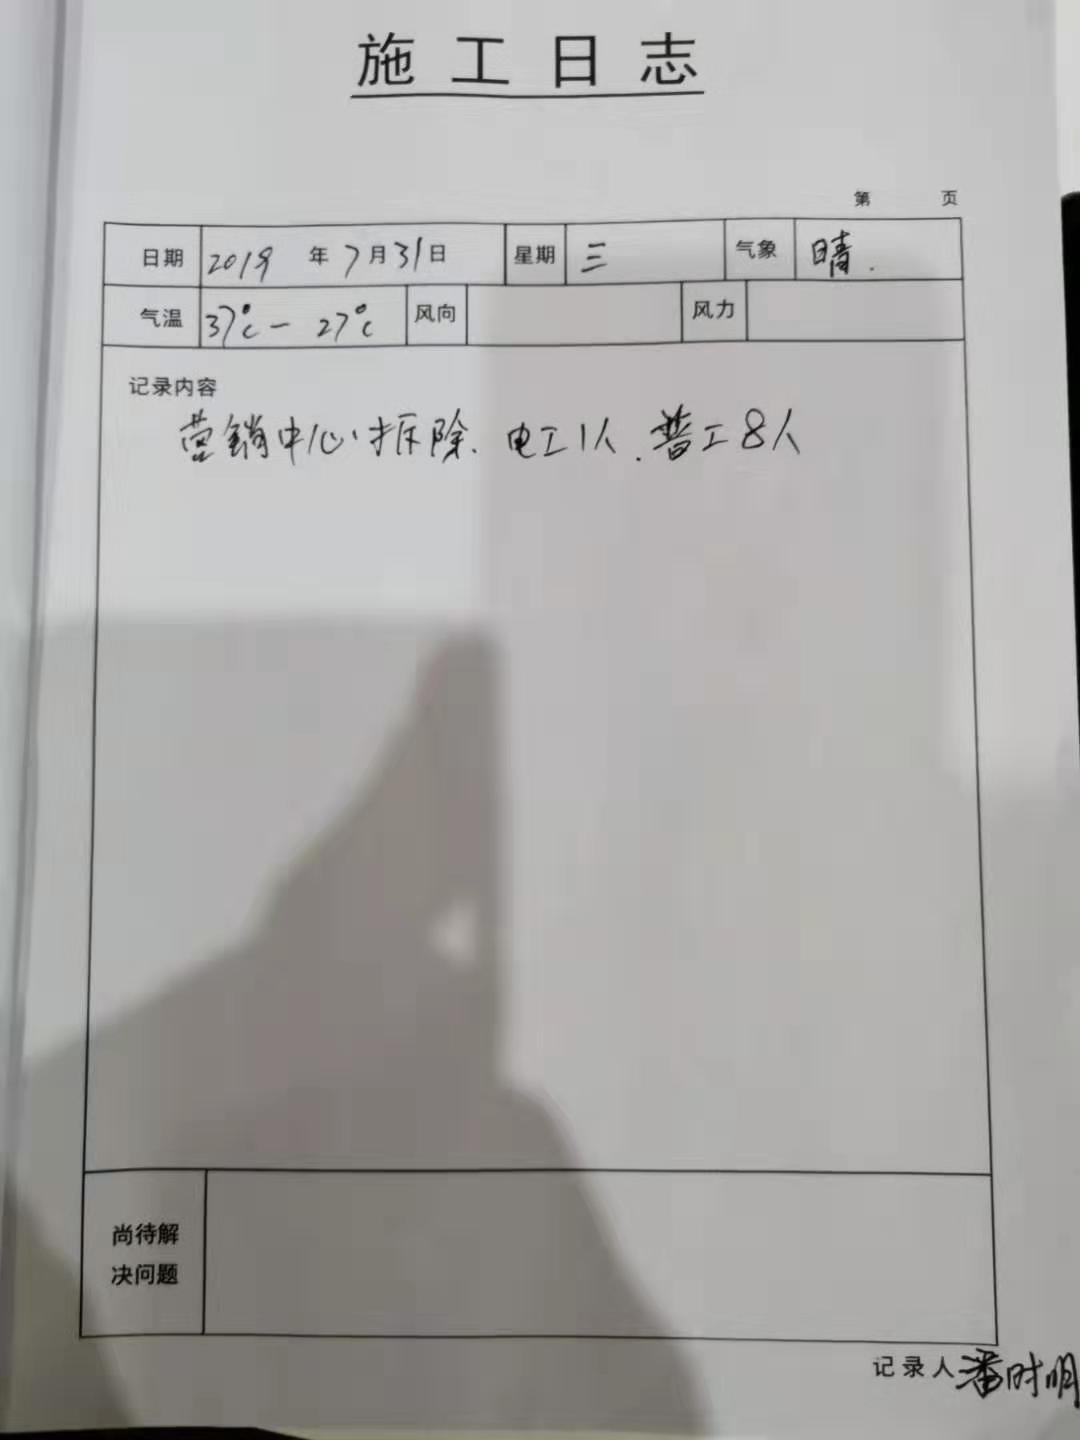 施工日志
第 页
日期 2019 年 7 月 31 日 星期 三 气象 晴.
气温 37℃ - 27℃ 风向 风力
记录内容
营销中心拆除、电工1人、普工8人
尚待解
决问题
记录人 潘时明